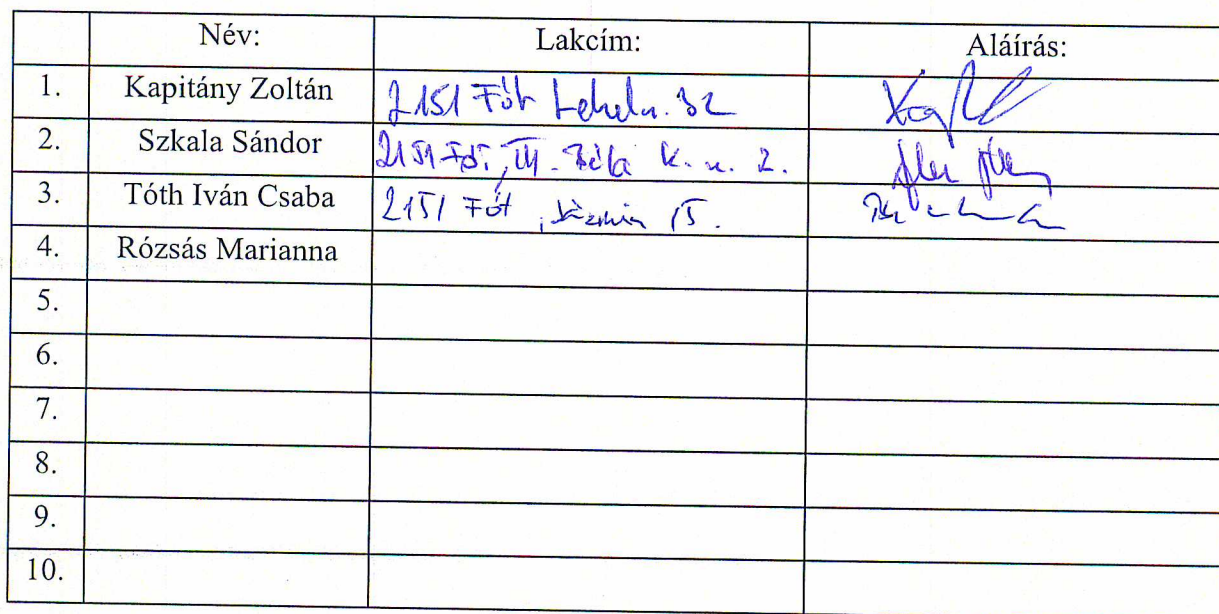 Név: Lakcím: Aláírás:
1. Kapitány Zoltán 2151 Fót Lehel u. 32
2. Szkala Sándor 2151 Fót, III. Béla k. u. 2.
3. Tóth Iván Csaba 2151 Fót, Jázmin 15.
4. Rózsás Marianna
5.
6.
7.
8.
9.
10.